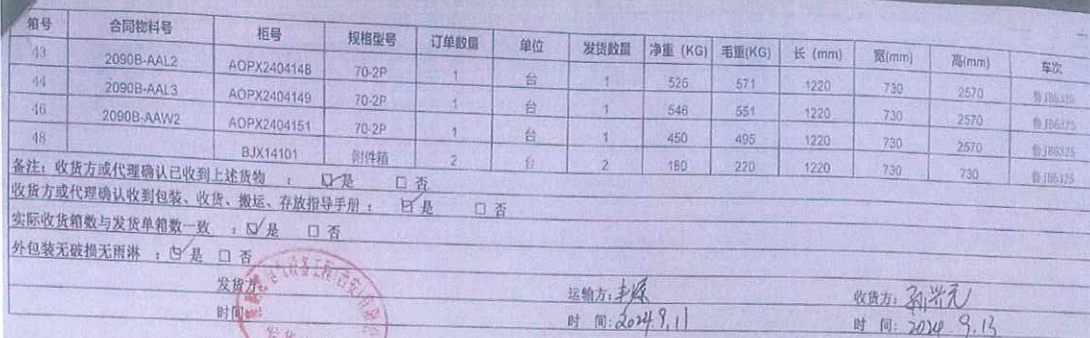 箱号 合同物料号 柜号 规格型号 订单数量 单位 发货数量 净重 (KG) 毛重(KG) 长 (mm) 宽(mm) 高(mm) 车次
43 2090B-AAL2 AOPX2404148 70-2P 1 台 1 526 571 1220 730 2570 鲁JB6325
44 2090B-AAL3 AOPX2404149 70-2P 1 台 1 546 551 1220 730 2570 鲁JB6325
46 2090B-AAW2 AOPX2404151 70-2P 1 台 1 450 495 1220 730 2570 鲁JB6325
48 BJX14101 附件箱 2 台 2 180 220 1220 730 730 鲁JB6325
备注：收货方或代理确认已收到上述货物 ： ☑是 □否
收货方或代理确认收到包装、收货、搬运、存放指导手册： ☑是 □否
实际收货箱数与发货单箱数一致 ：☑是 □否
外包装无破损无雨淋 ：☑是 □否
发货方 运输方: 收货方: 孙兴元
时间 时 间: 2024.9.11 时 间: 2024 9.13